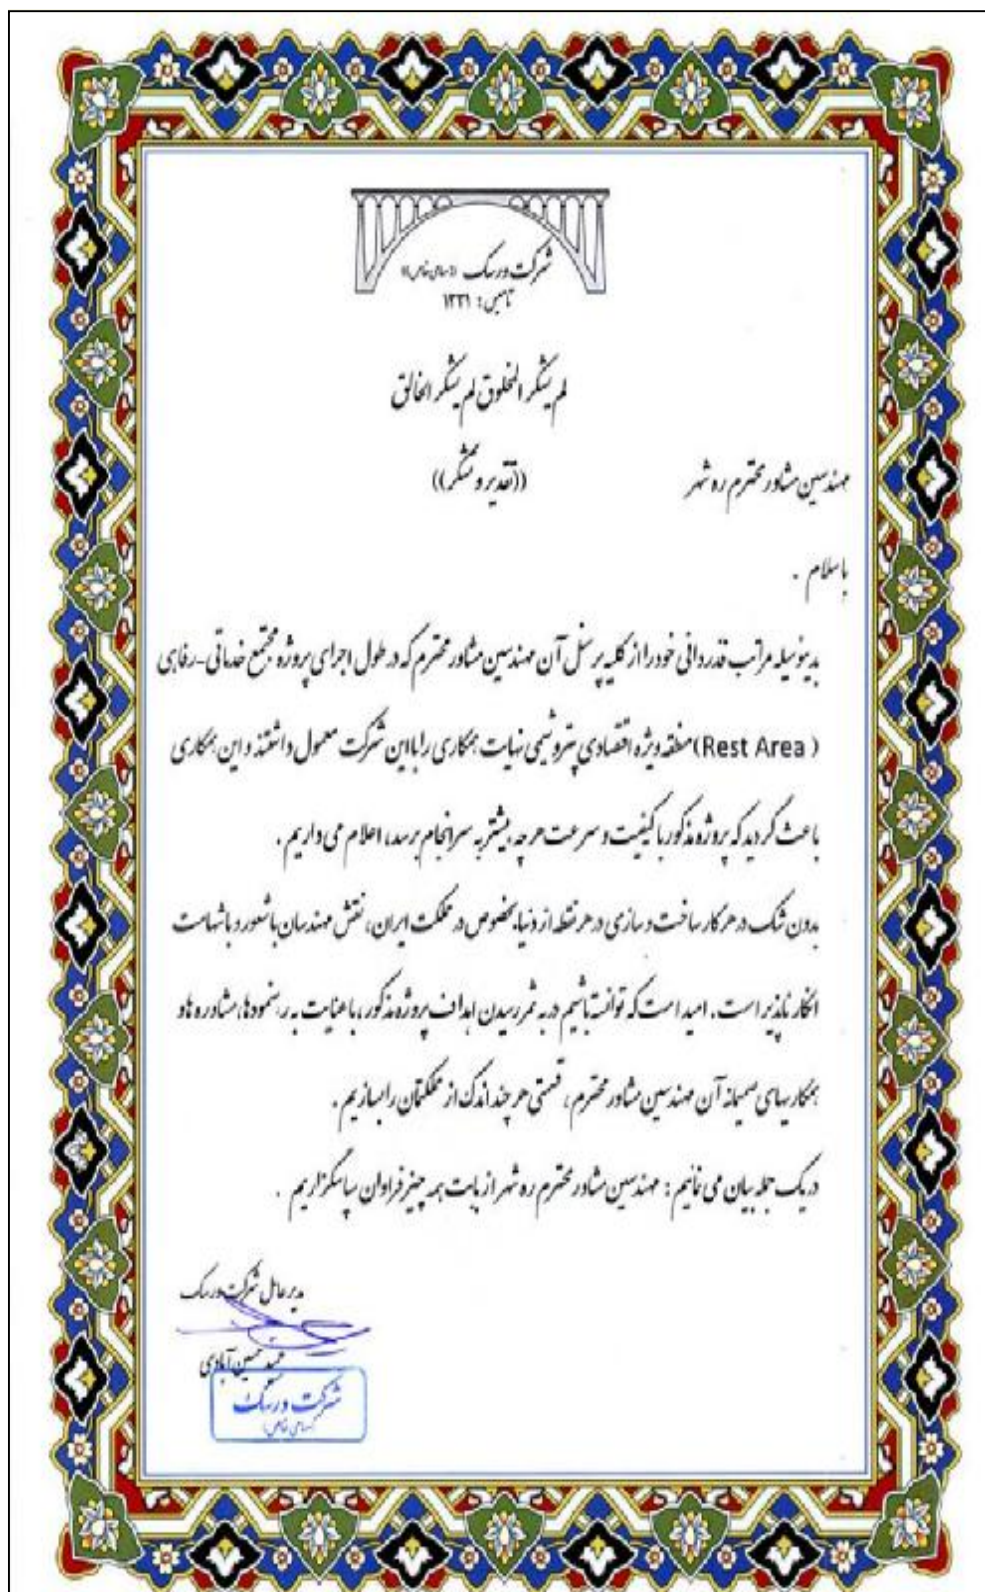 شرکت ورسک ((سهامی خاص))
تاسیس: ۱۳۳۱
لم یشکر المخلوق لم یشکر الخالق
مهندسین مشاور محترم ره شهر
((تقدیر و تشکر))
باسلام .
بدینوسیله مراتب قدردانی خود را از کلیه پرسنل آن مهندسین مشاور محترم که در طول اجرای پروژه مجتمع خدماتی-رفاهی
( Rest Area )منطقه ویژه اقتصادی پتروشیمی نهایت همکاری را با این شرکت معمول داشتند و این همکاری
باعث گردید که پروژه مذکور با کیفیت و سرعت هر چه بیشتر به سرانجام برسد، اعلام می داریم .
بدون شک در هر کار ساخت و سازی در هر نقطه از دنیا بخصوص در مملکت ایران، نقش مهندسان باشعور و باشهامت
انکار ناپذیر است. امید است که توانسته باشیم در به ثمر رسیدن اهداف پروژه مذکور، با عنایت به رهنمودها، مشاوره ها و
همکاریهای صمیمانه آن مهندسین مشاور محترم، قسمتی هر چند اندک از مملکتمان را بسازیم .
در یک جمله بیان می نمائیم : مهندسین مشاور محترم ره شهر از بابت همه چیز فراوان سپاسگزاریم .
مدیر عامل شرکت ورسک
حسین آبادی
شرکت ورسک
(سهامی خاص)